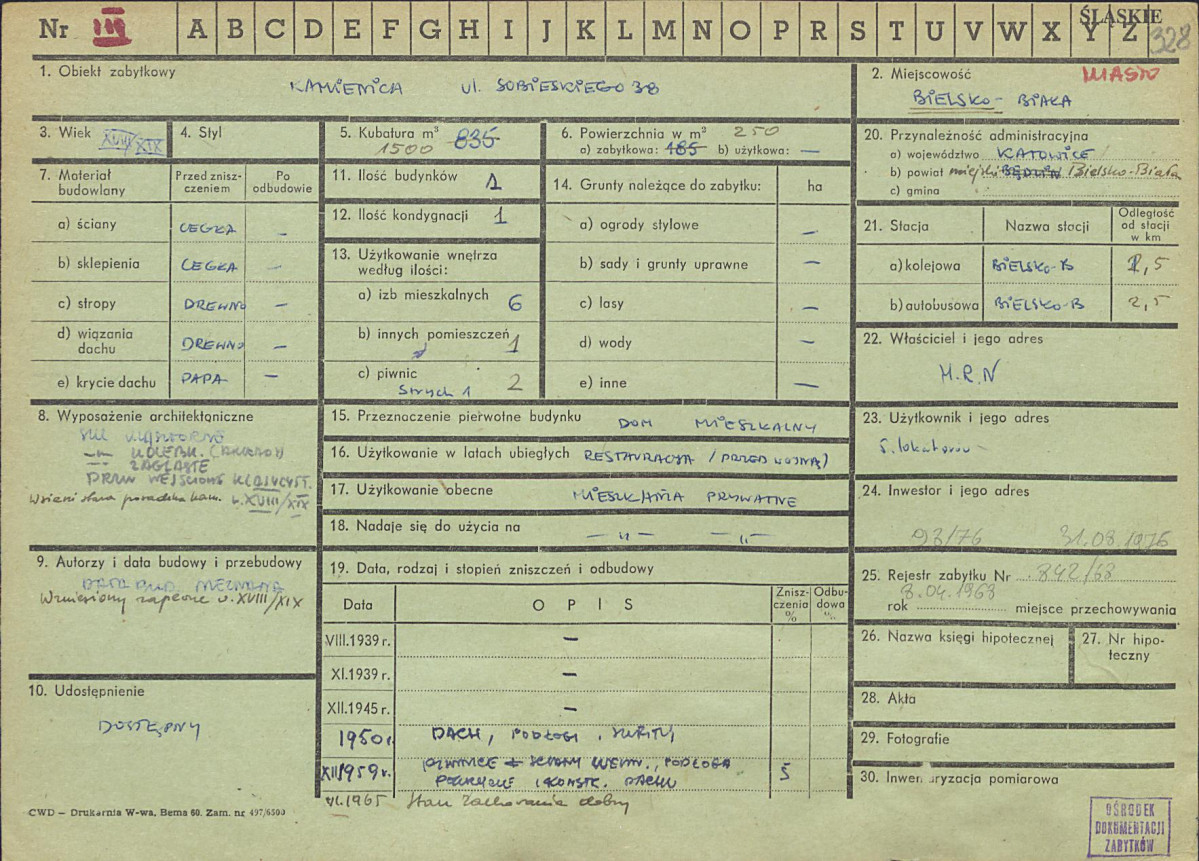 Nr III A B C D E F G H I J K L M N O P R S T U V W X Y Z
ŚLĄSKIE
328
1. Obiekt zabytkowy
KAMIENICA ul. SOBIESKIEGO 38
2. Miejscowość MIASTO
BIELSKO-BIAŁA
3. Wiek XVIII/XIX
4. Styl
5. Kubatura m³ 835
1500
6. Powierzchnia w m² 250
a) zabytkowa: 185 b) użytkowa: —
20. Przynależność administracyjna
a) województwo KATOWICE
b) powiat miejski BĘDZIN Bielsko-Biała
c) gmina
7. Materiał budowlany
Przed zniszczeniem
Po odbudowie
a) ściany CEGŁA —
b) sklepienia CEGŁA —
c) stropy DREWNO —
d) wiązania dachu DREWNO —
e) krycie dachu PAPA —
11. Ilość budynków 1
12. Ilość kondygnacji 1
13. Użytkowanie wnętrza według ilości:
a) izb mieszkalnych 6
b) innych pomieszczeń 1
c) piwnic 2
Strych 1
14. Grunty należące do zabytku: ha
a) ogrody stylowe —
b) sady i grunty uprawne —
c) lasy —
d) wody —
e) inne —
21. Stacja Nazwa stacji Odległość od stacji w km
a) kolejowa BIELSKO-B 1,5
b) autobusowa BIELSKO-B 2,5
22. Właściciel i jego adres
M.R.N
8. Wyposażenie architektoniczne
ZAGLĄSTE
DRZWI WEJŚCIOWE KLASYCYST.
w. XVIII/XIX
15. Przeznaczenie pierwotne budynku DOM MIESZKALNY
16. Użytkowanie w latach ubiegłych RESTAURACJA (PRZED WOJNĄ)
17. Użytkowanie obecne MIESZKANIA PRYWATNE
18. Nadaje się do użycia na —„— —„—
23. Użytkownik i jego adres
5. lokatorów
24. Inwestor i jego adres
93/76 31.08.1976
9. Autorzy i data budowy i przebudowy
DATA BUD. NIEZNANA
Wzniesiony zapewne w. XVIII/XIX
19. Data, rodzaj i stopień zniszczeń i odbudowy
Data OPIS Zniszczenia % Odbudowa %
VIII.1939 r. —
XI.1939 r. —
XII.1945 r. —
1950 r. DACH, PODŁOGI, SUFITY
XII 1959 r. PIWNICE + ŚCIANY WEWN., PODŁOGA
POKRYCIE I KONSTR. DACHU 5
VI.1965 Stan zachowania dobry
25. Rejestr zabytku Nr 842/68
8.04.1968
rok miejsce przechowywania
26. Nazwa księgi hipotecznej
27. Nr hipoteczny
10. Udostępnienie
DOSTĘPNY
28. Akta
29. Fotografie
30. Inwentaryzacja pomiarowa
CWD – Drukarnia W-wa, Bema 60. Zam. nr 497/6500
OŚRODEK
DOKUMENTACJI
ZABYTKÓW